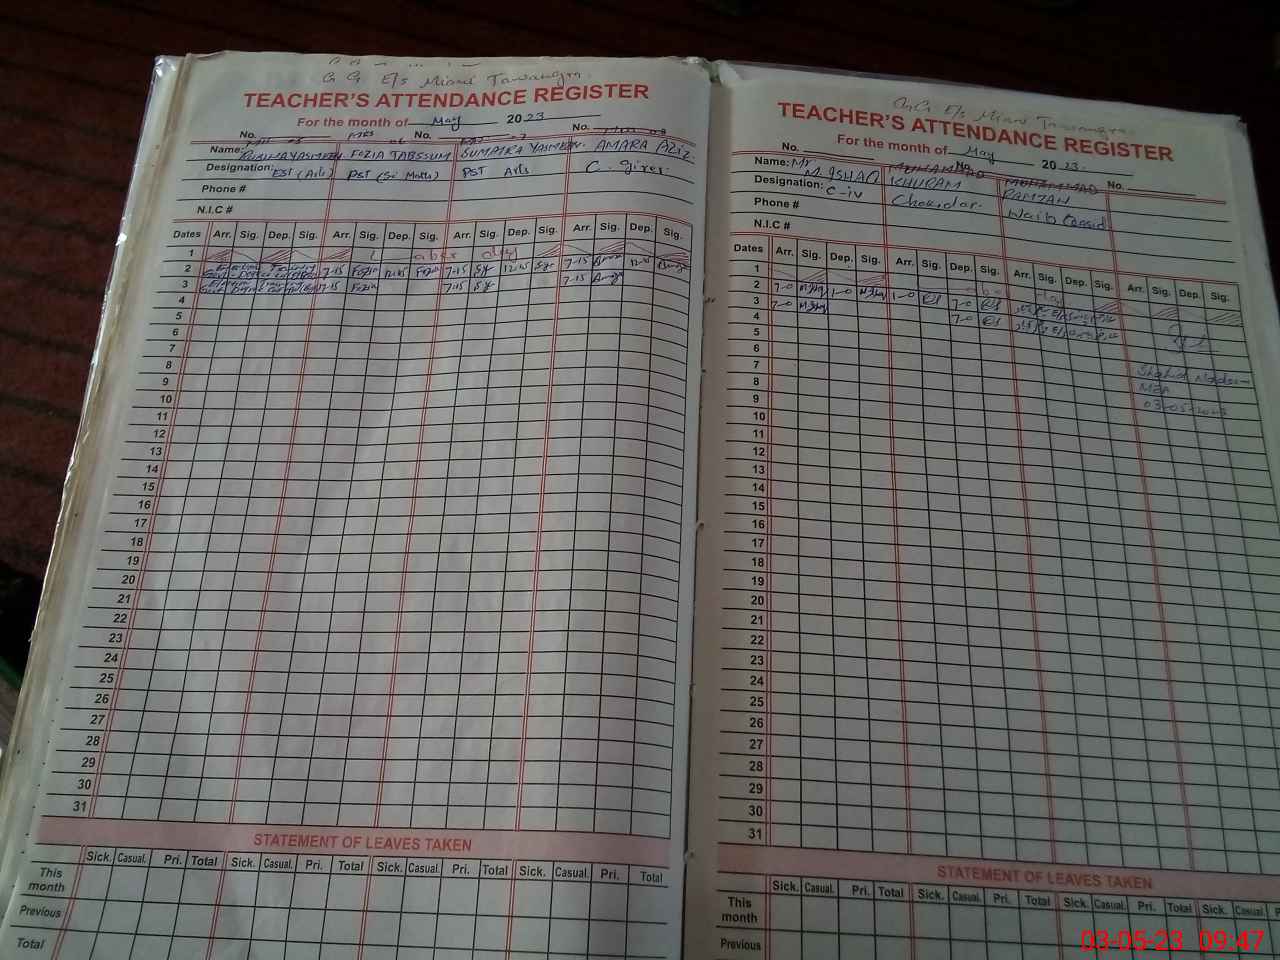 G G E/s Miani
TEACHER'S ATTENDANCE REGISTER
For the month of May 2023
No. No. No.
Name: YASMEEN FOZIA TABSSUM SUMAIRA YASMEEN AMARA AZIZ
Designation: EST (Arts) PST (Sci Maths) PST Arts C.
Phone #
N.I.C #
Dates Arr. Sig. Dep. Sig. Arr. Sig. Dep. Sig. Arr. Sig. Dep. Sig. Arr. Sig. Dep. Sig.
1 Laber day
2 7-15 Fozia 12:45 Fozia 7-15 12:45 7-15 12:45
3 7-15 Fozia 7-15 7-15
4
5
6
7
8
9
10
11
12
13
14
15
16
17
18
19
20
21
22
23
24
25
26
27
28
29
30
31
STATEMENT OF LEAVES TAKEN
Sick. Casual. Pri. Total Sick. Casual. Pri. Total Sick. Casual. Pri. Total Sick. Casual. Pri. Total
This month
Previous
Total
GG E/s Miani
TEACHER'S ATTENDANCE REGISTER
For the month of May 2023.
No. No. No.
Name: Mr M. ISHAQ MUHAMMAD KHURAM MUHAMMAD RAMZAN
Designation: C-iv Chokidar. Naib Qasid
Phone #
N.I.C #
Dates Arr. Sig. Dep. Sig. Arr. Sig. Dep. Sig. Arr. Sig. Dep. Sig. Arr. Sig. Dep. Sig.
1
2 7-0 1-0 1-0 7-0
3 7-0 7-0
4
5
6
7
8
9
10
11
12
13
14
15
16
17
18
19
20
21
22
23
24
25
26
27
28
29
30
31
Shahid
MEA
03-05-2023
STATEMENT OF LEAVES TAKEN
Sick. Casual. Pri. Total Sick. Casual. Pri. Total Sick. Casual. Pri. Total Sick. Casual. P
This month
Previous
03-05-23 09:47